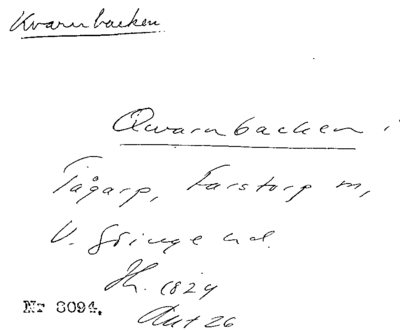 Kvarnbacken
Qvarnbacken i
Tågarp, Farstorp m,
V. Göinge hd.
Jh. 1824
Akt 26
Nr 8094.